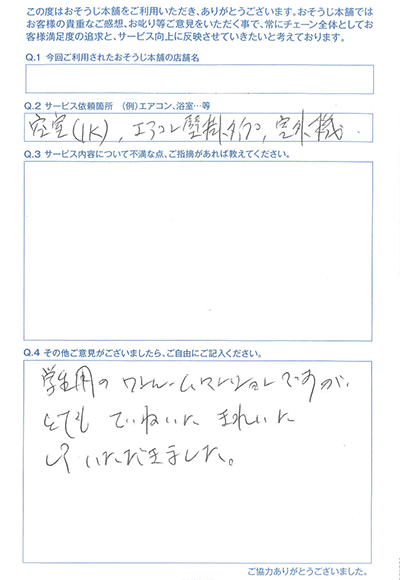 この度はおそうじ本舗をご利用いただき、ありがとうございます。おそうじ本舗では
お客様の貴重なご感想、お叱り等ご意見をいただく事で、常にチェーン全体としてお
客様満足度の追求と、サービス向上に反映させていきたいと考えております。
Q.1 今回ご利用されたおそうじ本舗の店舗名
Q.2 サービス依頼箇所 (例)エアコン、浴室…等
空室(1K), エアコン壁掛タイプ, 室外機.
Q.3 サービス内容について不満な点、ご指摘があれば教えてください。
Q.4 その他ご意見がございましたら、ご自由にご記入ください。
学生用のワンルームマンションですが、
とても ていねいに きれいに
して いただきました。
ご協力ありがとうございました。